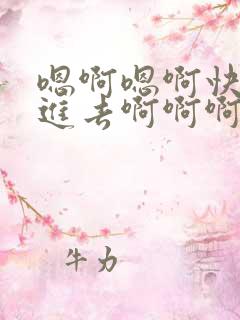 嗯啊嗯啊快
進去啊啊啊
牛力